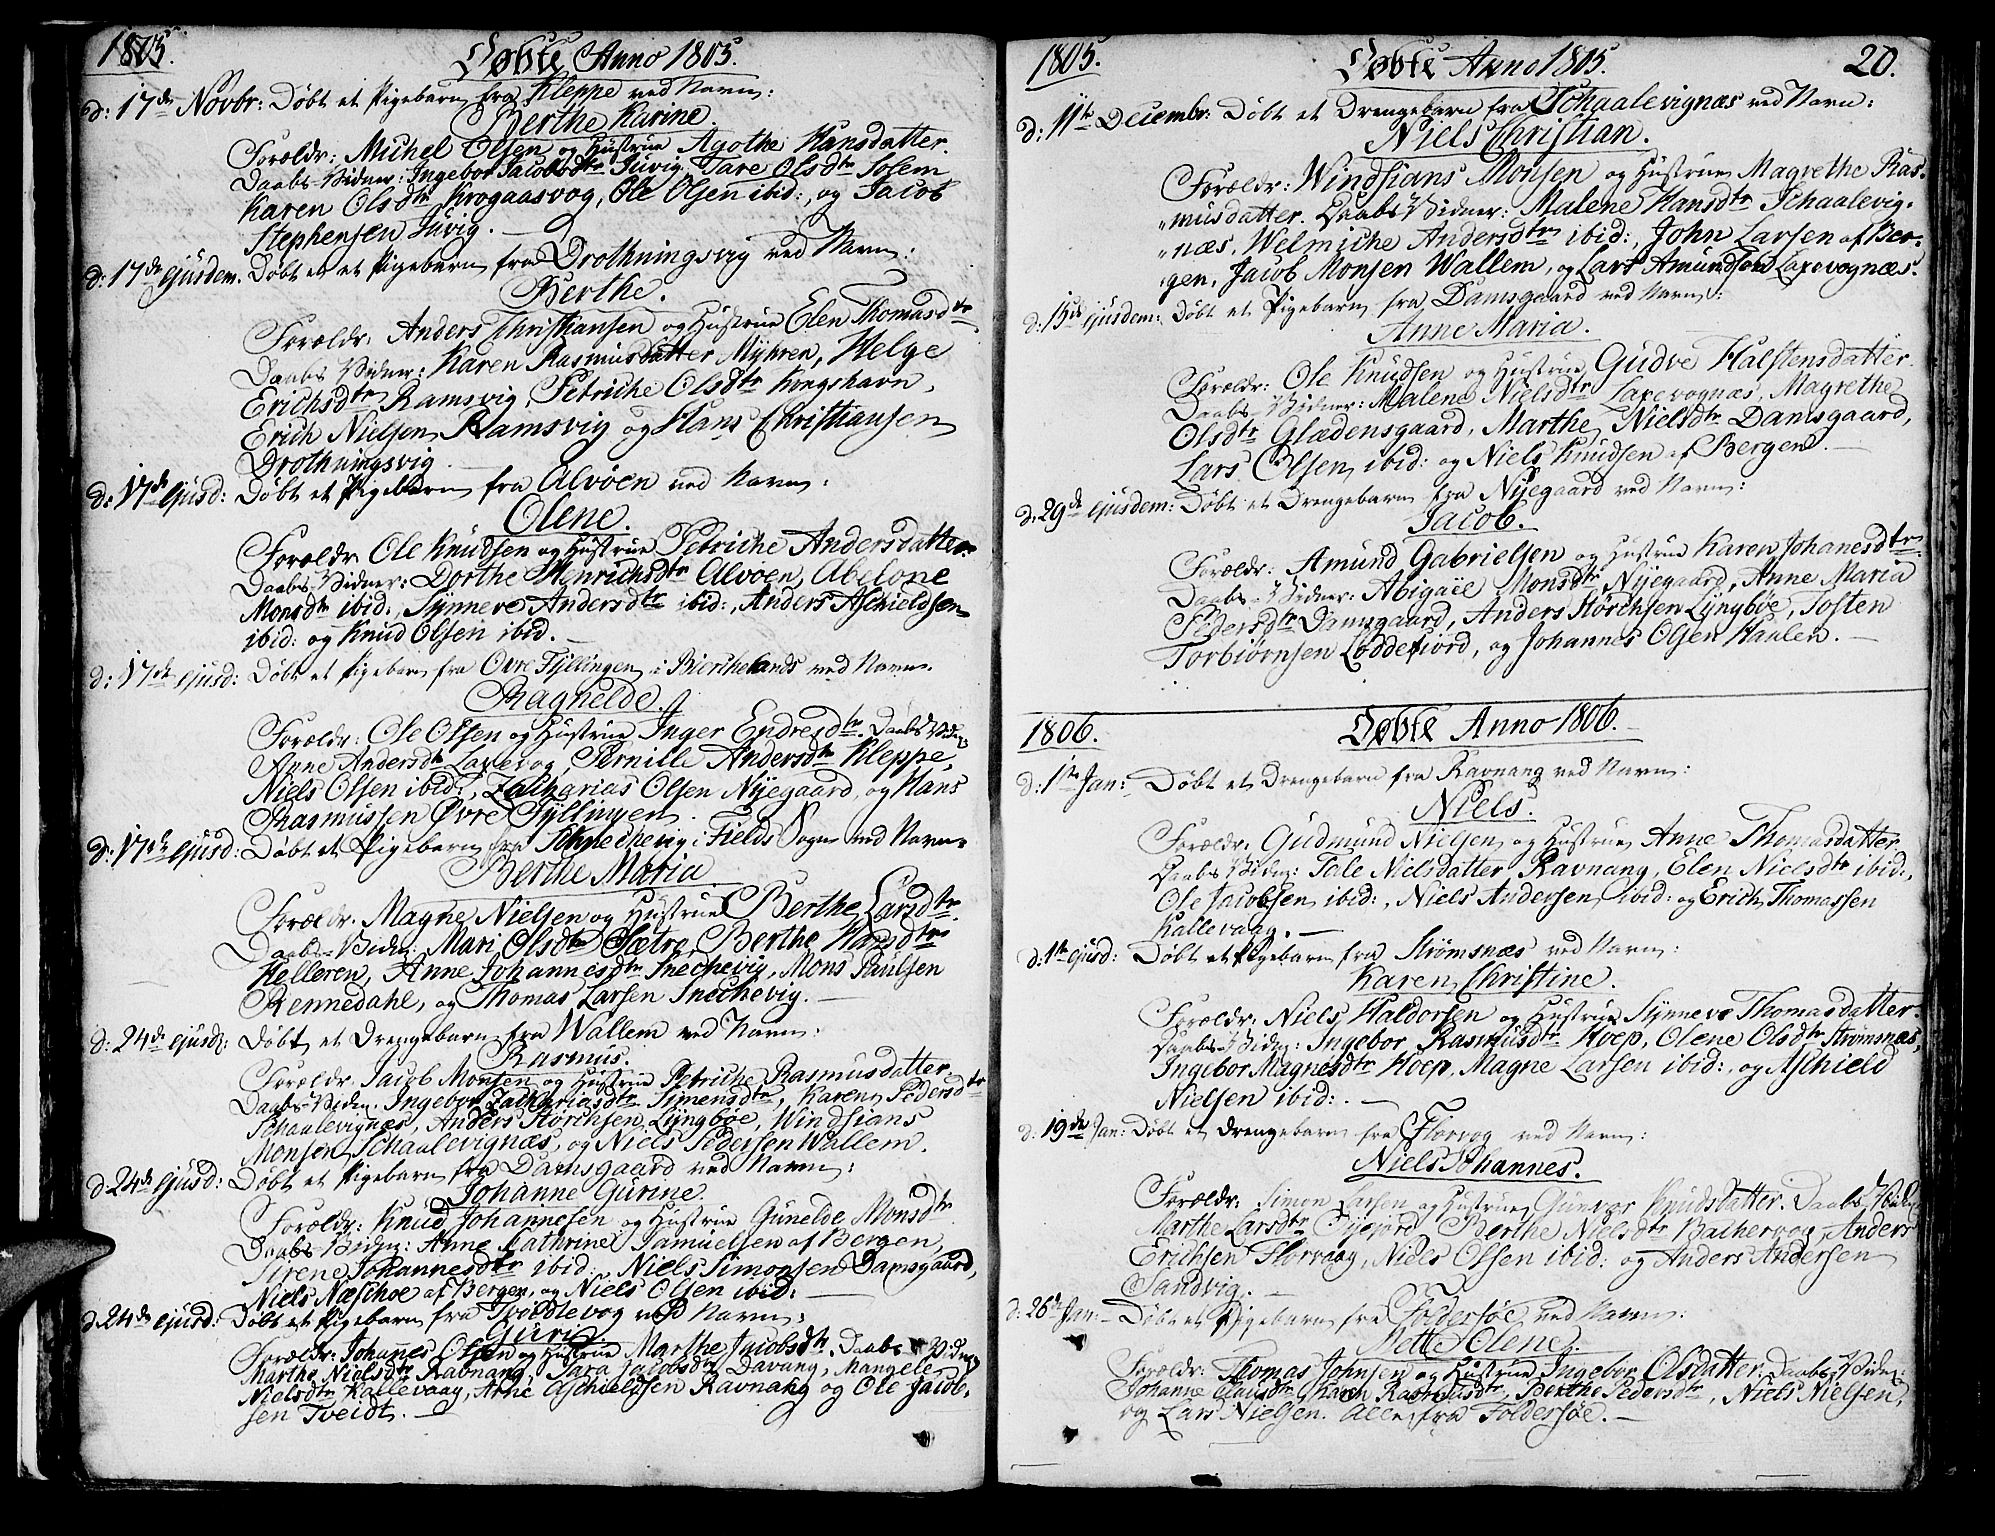 1805.
Døbte Anno 1805.
d: 17de Novbr: Døbt et Pigebarn fra Kleppe ved Navn:
Berthe Karine.
Forældr: Michel Olsen og Hustrue Agothe Hansdatter.
Daabs-Vidner: Ingebor Jacobsdtr Juvig, Tare Olsdtr Solem
Karen Olsdtr Krogaasvog, Ole Olsen ibid:, og Jacob
Stephensen Juvig.
d: 17de ejusdem. Døbt et Pigebarn fra Drothningsvig ved Navn:
Berthe.
Forældr: Anders Christiansen og Hustrue Elen Thomasdtr
Daabs Vidner: Karen Rasmusdatter Myhren, Helge
Erichsdtr Ramsvig, Petriche Olsdtr Kongshavn,
Erich Nielsen Ramsvig og Hans Christiansen
Drothningsvig.
d: 17de ejusd: Døbt et Pigebarn fra Alvøen ved Navn:
Olene.
Forældr: Ole Knudsen og Hustrue Petriche Andersdatter
Daabs-Vidner: Dorthe Henrichsdtr Alvøen, Abelone
Monsdtr ibid:, Synneve Andersdtr ibid:, Anders Aschieldsen
ibid: og Knud Olsen ibid.
d: 17de ejusd: Døbt et Pigebarn fra Øvre Fyllingen i Bierchelands ved Navn.
Ragnelde.
Forældr: Ole Olsen og Hustrue Inger Endresdtr. Daabs Vidn:
Anne Andersdtr Laxevog, Pernille Andersdtr Kleppe,
Niels Olsen ibid:, Zacharias Olsen Nyegaard, og Hans
Rasmussen Øvre Fyllingen.
d: 17de ejusd: Døbt et Pigebarn fra Snechevig i Fields Sogn ved Navn:
Berthe Maria
Forældr: Magne Nielsen og Hustrue Berthe Larsdtr.
Daabs-Vidn: Mari Olsdtr Sætre, Berthe Hansdtr
Helleren, Anne Johannesdtr Snechevig, Mons Paulsen
Rennedahl, og Thomas Larsen Snechevig.
d: 24de ejusd: Døbt et Drengebarn fra Wallem ved Navn:
Rasmus.
Forældr: Jacob Monsen og Hustrue Petriche Rasmusdatter.
Daabs-Vidn: Ingebor Zachariasdtr Simensdtr, Karen Pedersdtr
Schaalevignæs, Anders Størchsen Lyngbøe, Windsians
Monsen Schaalevignæs, og Niels Pedersen Wallem.
d: 24de ejusd: Døbt et Pigebarn fra Damsgaard ved Navn:
Johanne Gurine.
Forældr: Knud Johannesen og Hustrue Gunelde Monsdtr
Daabs Vidn: Anne Cathrine Samuelsen af Bergen,
Sirene Johannesdtr ibid:, Niels Simonsen Damsgaard,
Niels Næschoe af Bergen, og Niels Olsen ibid:
d: 24de ejusd: Døbt et Pigebarn fra Tveidtevog ved Navn:
Guri.
Forældr: Johanes Olsen og Hustrue Marthe Jacobsdtr. Daabs Vidn:
Marthe Nielsdtr Ravnang, Tara Jacobsdtr Davang, Mangele
Nielsdtr Kallevaag, Arne Aschieldsen Ravnang og Ole Jacob-
sen Tveidt.
1805.
Døbte Anno 1805.
20.
d: 11te Decembr: Døbt et Drengebarn fra Schaalevignæs ved Navn:
Niels Christian.
Forældr: Windsians Monsen og Hustrue Magrethe Ras-
musdatter. Daabs Vidner: Malene Hansdtr Schaalevig-
næs, Welmiche Andersdtr ibid:, John Larsen af Ber-
gen, Jacob Monsen Wallem, og Lars Amundsen Laxevognæs.
d: 15de ejusdem: Døbt et Pigebarn fra Damsgaard ved Navn:
Anne Maria.
Forældr: Ole Knudsen og Hustrue Gudve Halstensdatter.
Daabs-Vidner: Malene Nielsdtr Laxevognæs, Magrethe
Olsdtr Glædensgaard, Marthe Nielsdtr Damsgaard,
Lars Olsen ibid: og Niels Knudsen af Bergen.
d: 29de ejusdem: Døbt et Drengebarn fra Nyegaard ved Navn:
Jacob.
Forældr: Amund Gabrielsen og Hustrue Karen Johanesdtr
Daabs-Vidner: Abigaie Monsdtr Nyegaard, Anne Maria
Pedersdtr Damsgaard, Anders Størchsen Lyngbøe, Tosten
Torbiørnsen Loddefiord, og Johannes Olsen Haalen.
1806.
Døbte Anno 1806.
d: 1te Jan: Døbt et Drengebarn fra Ravnang ved Navn:
Niels.
Forældr: Gudmund Nielsen og Hustrue Anne Thomasdatter
Daabs Vidn: Tale Nielsdatter Ravnang, Elen Nielsdtr ibid:,
Ole Jacobsen ibid:, Niels Andersen ibid: og Erich Thomassen
Kallevaag.
d: 1te ejusd: Døbt et Pigebarn fra Strømsnæs ved Navn:
Karen Christine.
Forældr: Niels Haldorsen og Hustrue Synneve Thomasdatter.
Daabs-Vidn: Ingebor Rasmusdtr Hoep, Olene Olsdtr Strømsnæs,
Ingebor Magnesdtr Hoep, Magne Larsen ibid:, og Aschield
Nielsen ibid:.
d: 19de Jan: Døbt et drengebarn fra Florvog ved Navn:
Niels Johannes.
Forældr: Simon Larsen og Hustrue Gunvor Knudsdatter. Daabs Vidn:
Marthe Larsdtr Berthe Nielsdtr Bachervog, Anders
Erichsen Florvaag, Niels Olsen ibid: og Anders Andersen
Sandvig.
d: 26de Jan: Døbt et Pigebarn fra Foldersøe ved Navn:
Mette Olene.
Forældr: Thomas Johnsen og Hustrue Ingebor Olsdatter. Daabs-Vidn:
Johanne Clausdtr, Karen Rasmusdtr, Berthe Pedersdtr, Niels Nielsen,
og Lars Nielsen. Alle fra Foldersøe.